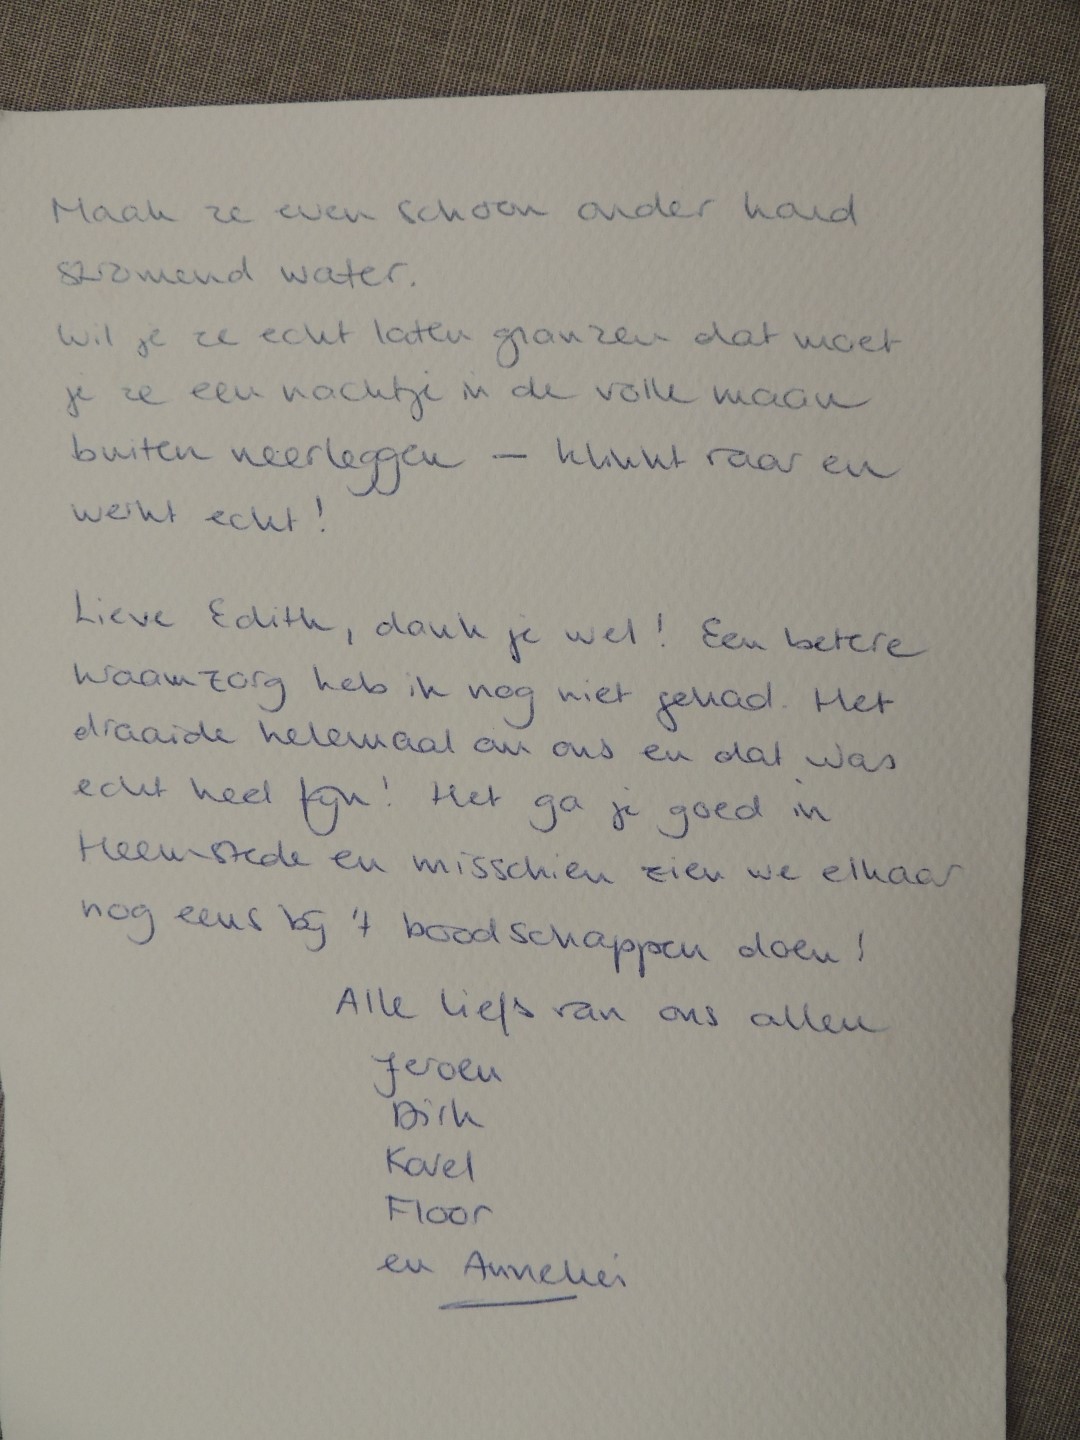 Maak ze even schoon onder hard
stromend water.
Wil je ze echt laten glanzen dat moet
je ze een nachtje in de volle maan
buiten neerleggen — klinkt raar en
werkt echt!
Lieve Edith, dank je wel! Een betere
kraamzorg heb ik nog niet gehad. Het
draaide helemaal om ons en dat was
echt heel fijn! Het ga je goed in
Heemstede en misschien zien we elkaar
nog eens bij 't boodschappen doen!
Alle liefs van ons allen
Jeroen
Dirk
Karel
Floor
en